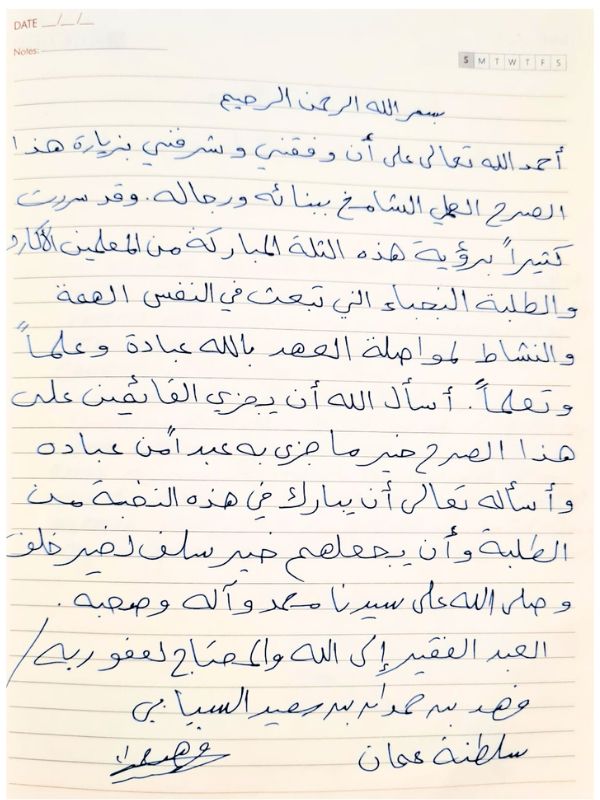 DATE __/__/__
Notes:
S M T W T F S
بسم الله الرحمن الرحيم
أحمد الله تعالى على أن وفقني وشرفني بزيارة هذا
الصرح العلمي الشامخ ببنائه ورجاله. وقد سررت
كثيراً برؤية هذه الثلة المباركة من المعلمين الأكارم
والطلبة النجباء التي تبعث في النفس الهمة
والنشاط لمواصلة العهد بالله عبادة وعلماً
وتعلماً. أسأل الله أن يجزي القائمين على
هذا الصرح خير ما جزى به عبداً من عباده
وأسأله تعالى أن يبارك في هذه النخبة من
الطلبة وأن يجعلهم خير سلف لخير خلف
وصلى الله على سيدنا محمد وآله وصحبه.
العبد الفقير إلى الله والمحتاج لعفو ربه/
فهد بن حمدان بن سعيد السيابي
سلطنة عمان